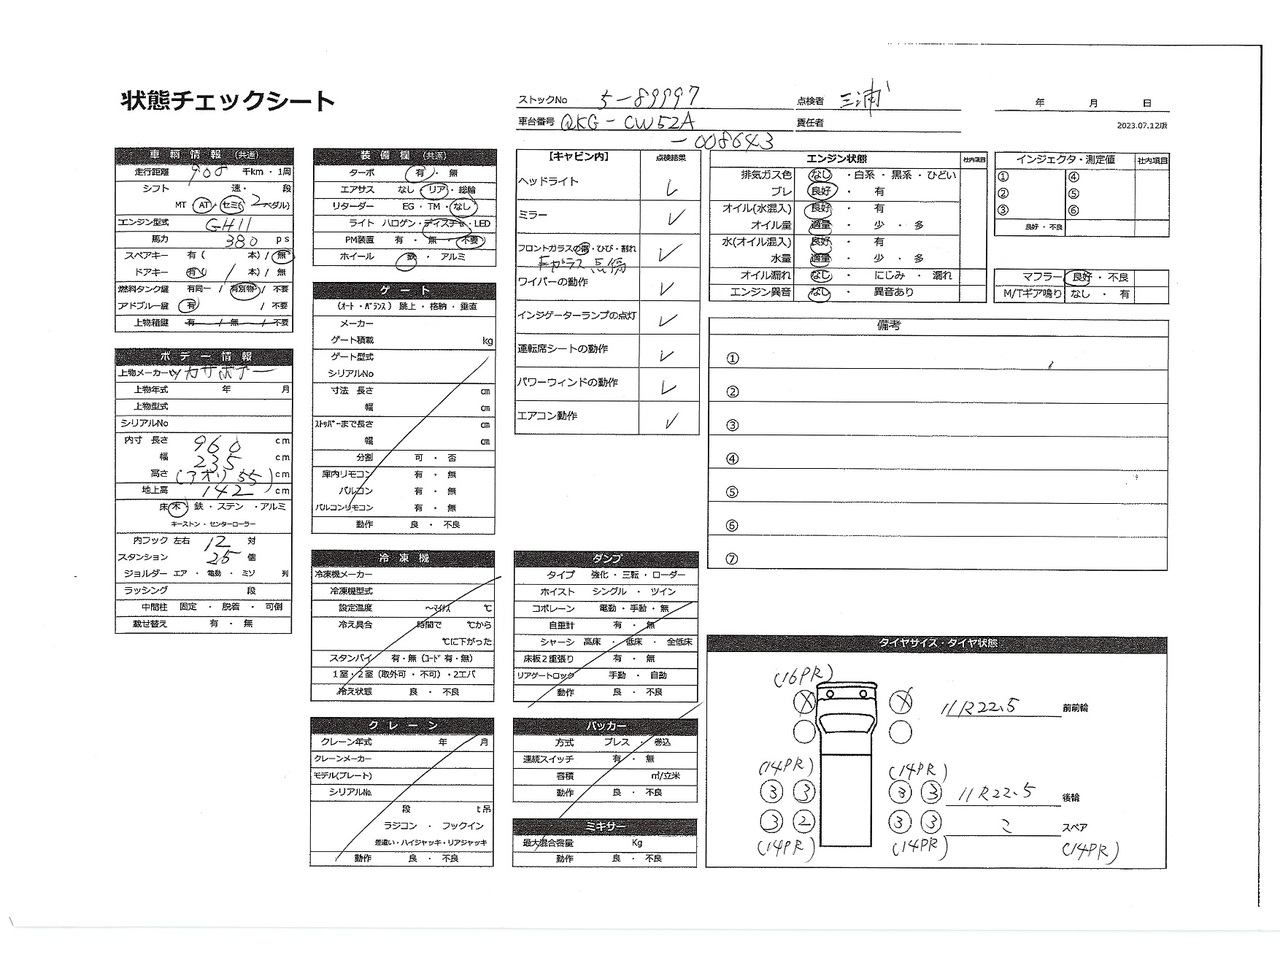 状態チェックシート
ストックNo 5-89997 点検者 三浦 年 月 日
車台番号 QKG-CW52A 責任者 2023.07.12版
-008643
車輌情報 (共通)
走行距離 908 千km・1周
シフト 速・ 段
MT AT・セミ( 2ペダル)
エンジン型式 GH11
馬力 380 ps
スペアキー 有( 本) / 無
ドアキー 有( / 本) / 無
燃料タンク鍵 有同一 / 有別物 / 不要
アドブルー鍵 有 / 不要
上物箱鍵 有 / 無 / 不要
ボデー情報
上物メーカー
上物年式 年 月
上物型式
シリアルNo
内寸 長さ 960 cm
幅 235 cm
高さ (アオリ 55) cm
地上高 142 cm
床 木・鉄・ステン・アルミ
キーストン・センターローラー
内フック 左右 12 対
スタンション 25 個
ジョルダー エア・電動・ミゾ 列
ラッシング 段
中間柱 固定・脱着・可倒
載せ替え 有・無
装備欄 (共通)
ターボ 有・無
エアサス なし・リア・総輪
リターダー EG・TM・なし
ライト ハロゲン・ディスチャ・LED
PM装置 有・無・不要
ホイール 鉄・アルミ
ゲート
(オート・バランス) 跳上・格納・垂直
メーカー
ゲート積載 kg
ゲート型式
シリアルNo
寸法 長さ cm
幅 cm
ストッパーまで長さ cm
幅 cm
分割 可・否
庫内リモコン 有・無
バルコン 有・無
バルコンリモコン 有・無
動作 良・不良
冷凍機
冷凍機メーカー
冷凍機型式
設定温度 ～マイナス ℃
冷え具合 時間で ℃から
℃に下がった
スタンバイ 有・無 (コード 有・無)
1室・2室 (取外可・不可)・2エバ
冷え状態 良・不良
クレーン
クレーン年式 年 月
クレーンメーカー
モデル(プレート)
シリアルNo.
段 t吊
ラジコン・フックイン
差違い・ハイジャッキ・リアジャッキ
動作 良・不良
【キャビン内】 点検結果
ヘッドライト ✓
ミラー ✓
フロントガラスの傷・ひび・割れ ✓
Fガラス 点傷
ワイパーの動作 ✓
インジゲーターランプの点灯 ✓
運転席シートの動作 ✓
パワーウィンドの動作 ✓
エアコン動作 ✓
ダンプ
タイプ 強化・三転・ローダー
ホイスト シングル・ツイン
コボレーン 電動・手動・無
自重計 有・無
シャーシ 高床・低床・全低床
床板2重張り 有・無
リアゲートロック 手動・自動
動作 良・不良
パッカー
方式 プレス・巻込
連続スイッチ 有・無
容積 ㎥/立米
動作 良・不良
ミキサー
最大混合容量 Kg
動作 良・不良
エンジン状態 社内項目
排気ガス色 なし・白系・黒系・ひどい
ブレ 良好・有
オイル(水混入) 良好・有
オイル量 適量・少・多
水(オイル混入) 良好・有
水量 適量・少・多
オイル漏れ なし・にじみ・漏れ
エンジン異音 なし・異音あり
インジェクタ・測定値 社内項目
① ④
② ⑤
③ ⑥
良好・不良
マフラー 良好・不良
M/Tギア鳴り なし・有
備考
①
②
③
④
⑤
⑥
⑦
タイヤサイズ・タイヤ状態
(16PR)
X X 11R22.5 前前輪
(14PR) (14PR)
3 3 3 3 11R22.5 後輪
3 2 3 3 こ スペア
(14PR) (14PR) (14PR)